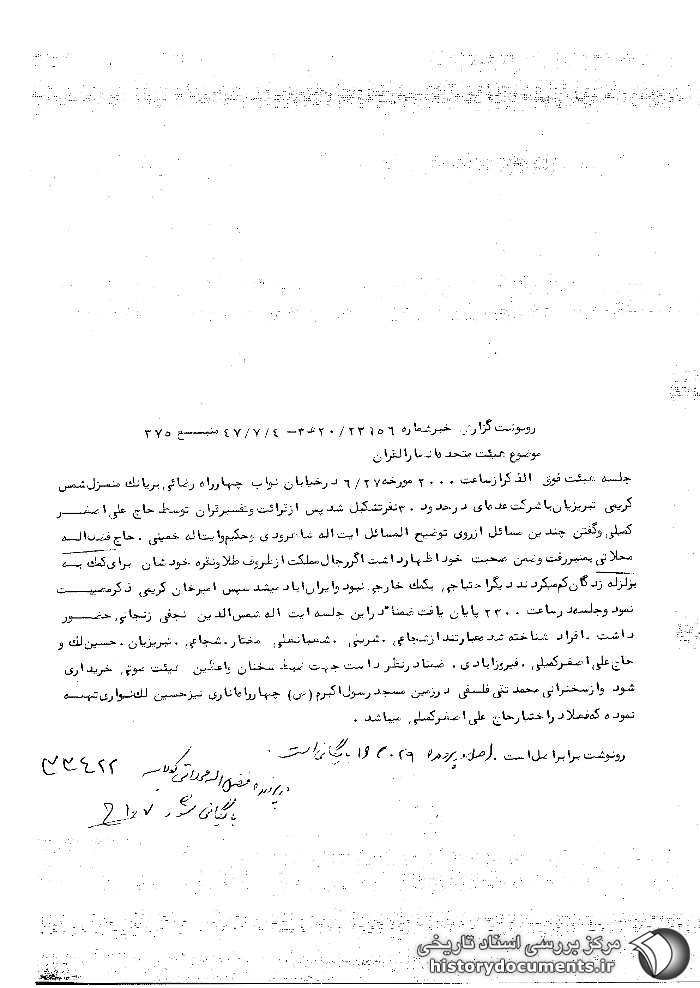 رونوشت گزارش خبر شماره ۲۳۱۵۶/۲۰ه۳ – ۴۷/۷/۴ منبع ۳۷۵
موضوع هیئت متحده انصارالقران
جلسه هیئت فوق الذکر از ساعت ۲۰۰۰ مورخه ۶/۲۷ در خیابان نواب چهارراه رضائی بریانك منزل شمس
کریمی تبریزیان با شرکت عده‌ای در حدود ۳۰ نفر تشکیل شد پس از قرائت و تفسیر قران توسط حاج علی اصغر
کمیلی و گفتن چندین مسائل از روی توضیح المسائل ایت اله شاهرودی و حکیم و ایت اله خمینی . حاج فضل اله
محلاتی بمنبر رفت و ضمن صحبت خود اظهار داشت اگر رجال مملکت از ظروف طلا و نقره خودشان برای کمك به
بزلزله زدگان کم میکردند دیگر احتیاجی بکمك خارجی نبود و ایران اباد میشد سپس امیرخان کریمی ذکر مصیبت
نمود و جلسه در ساعت ۲۳۰۰ پایان یافت ضمنا" در این جلسه ایت اله شمس الدین نجفی زنجانی حضور
داشت . افراد شناخته شده عبارتند از شجاعی . شرینی . شعبانعلی مختار . شجاعی . تبریزیان . حسین لك و
حاج علی اصغر کمیلی . فیروزابادی . ضمنا در نظر است جهت ضبط سخنان واعظین هیئت صوتی خریداری
شود و از سخنرانی محمد تقی فلسفی در زمین مسجد رسول اکرم (ص) چهارراه اناری نیز حسین لك نواری تهیه
نموده که فعلا در اختیار حاج علی اصغر کمیلی میباشد .
رونوشت برابر اصل است . اصل در پرونده ۱۶۳۰۲۹ بایگانی است .
در پرونده فضل اله محلاتی کلاسه ۳۳۴۲۲
بایگانی شود
مرکز بررسی اسناد تاریخی
historydocuments.ir